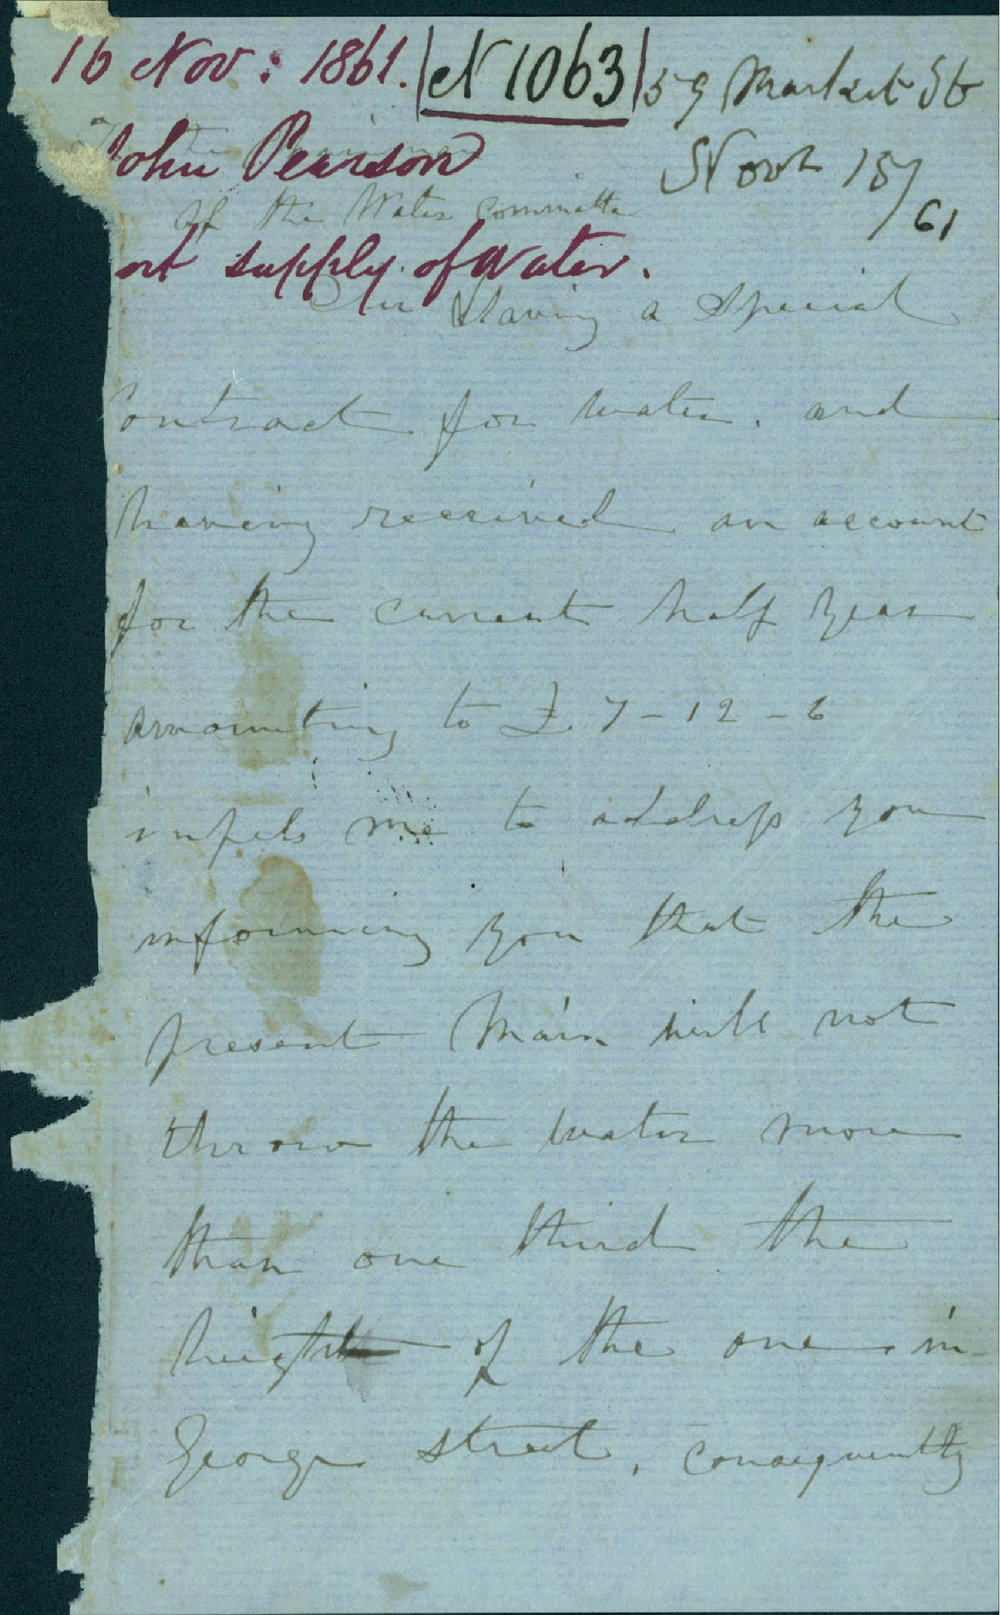 16 Nov: 1861. N1063 59 Market St
Novr 15/61
To the Chairman
John Pearson
of the Water Committee
ort supply of Water.
Sir Having a Special
Contract for water. and
having received an account
for the current half year
amounting to £7-12-6
impels me to address you
informing you that the
present Main will not
throw the water more
than one third the
height of the one in
George street, consequently